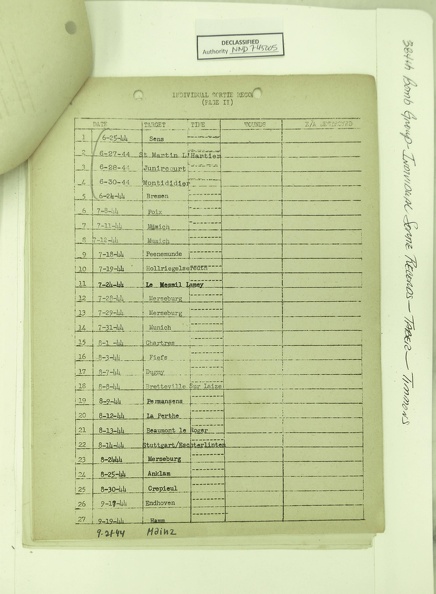 DECLASSIFIED
Authority NND 745005
384th Bomb Group - Individual Sortie Records - Taber - Timmons
INDIVIDUAL SORTIE RECORD
(PAGE II)
DATE TARGET TIME WOUNDS E/A DESTROYED
1 6-25-44 Sens
2 6-27-44 St Martin L'Hartier
3 6-28-44 Junircourt
4 6-30-44 Montididier
5 6-24-44 Bremen
6 7-8-44 Poix
7 7-11-44 Munich
8 7-12-44 Munich
9 7-18-44 Peenemunde
10 7-19-44 Hollriegelskreuth
11 7-24-44 Le Mesnil Lamey
12 7-28-44 Merseburg
13 7-29-44 Merseburg
14 7-31-44 Munich
15 8-1-44 Chartres
16 8-3-44 Fiefs
17 8-7-44 Dugny
18 8-8-44 Bretteville Sur Laize
19 8-9-44 Permansens
20 8-12-44 La Perthe
21 8-13-44 Beaumont le Roger
22 8-14-44 Stuttgart/Echterlinten
23 8-2444 Merseburg
24 8-25-44 Anklam
25 8-30-44 Crepieul
26 9-17-44 Endhoven
27 9-19-44 Hamm
9-21-44 Mainz